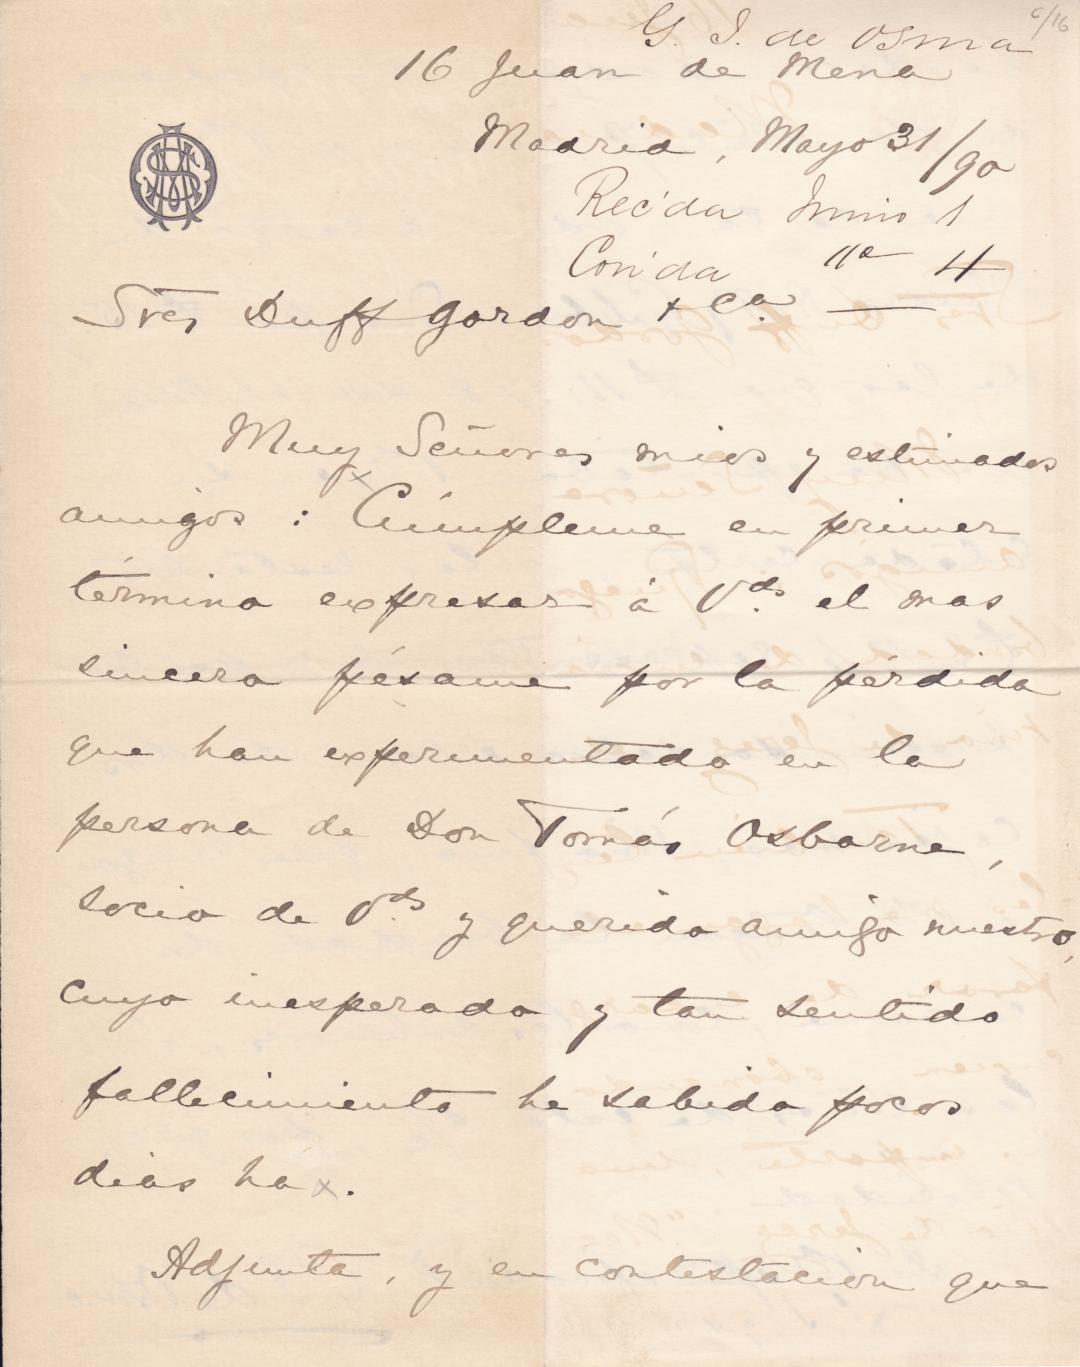 6/16
G. J. de Osma
16 Juan de Mena
Madrid, Mayo 31/90
Recida Junio 1
Conda " 4
Sres Duff Gordon + Ca.
Muy Señores mios y estimados
amigos : Cúmpleme en primer
término expresar á Vds. el mas
sincero pésame por la pérdida
que han experimentado en la
persona de Don Tomás Osborne,
socio de Vds y querido amigo nuestro,
cuyo inesperado y tan sentido
fallecimiento he sabido pocos
dias há x.
Adjunta, y en contestacion que